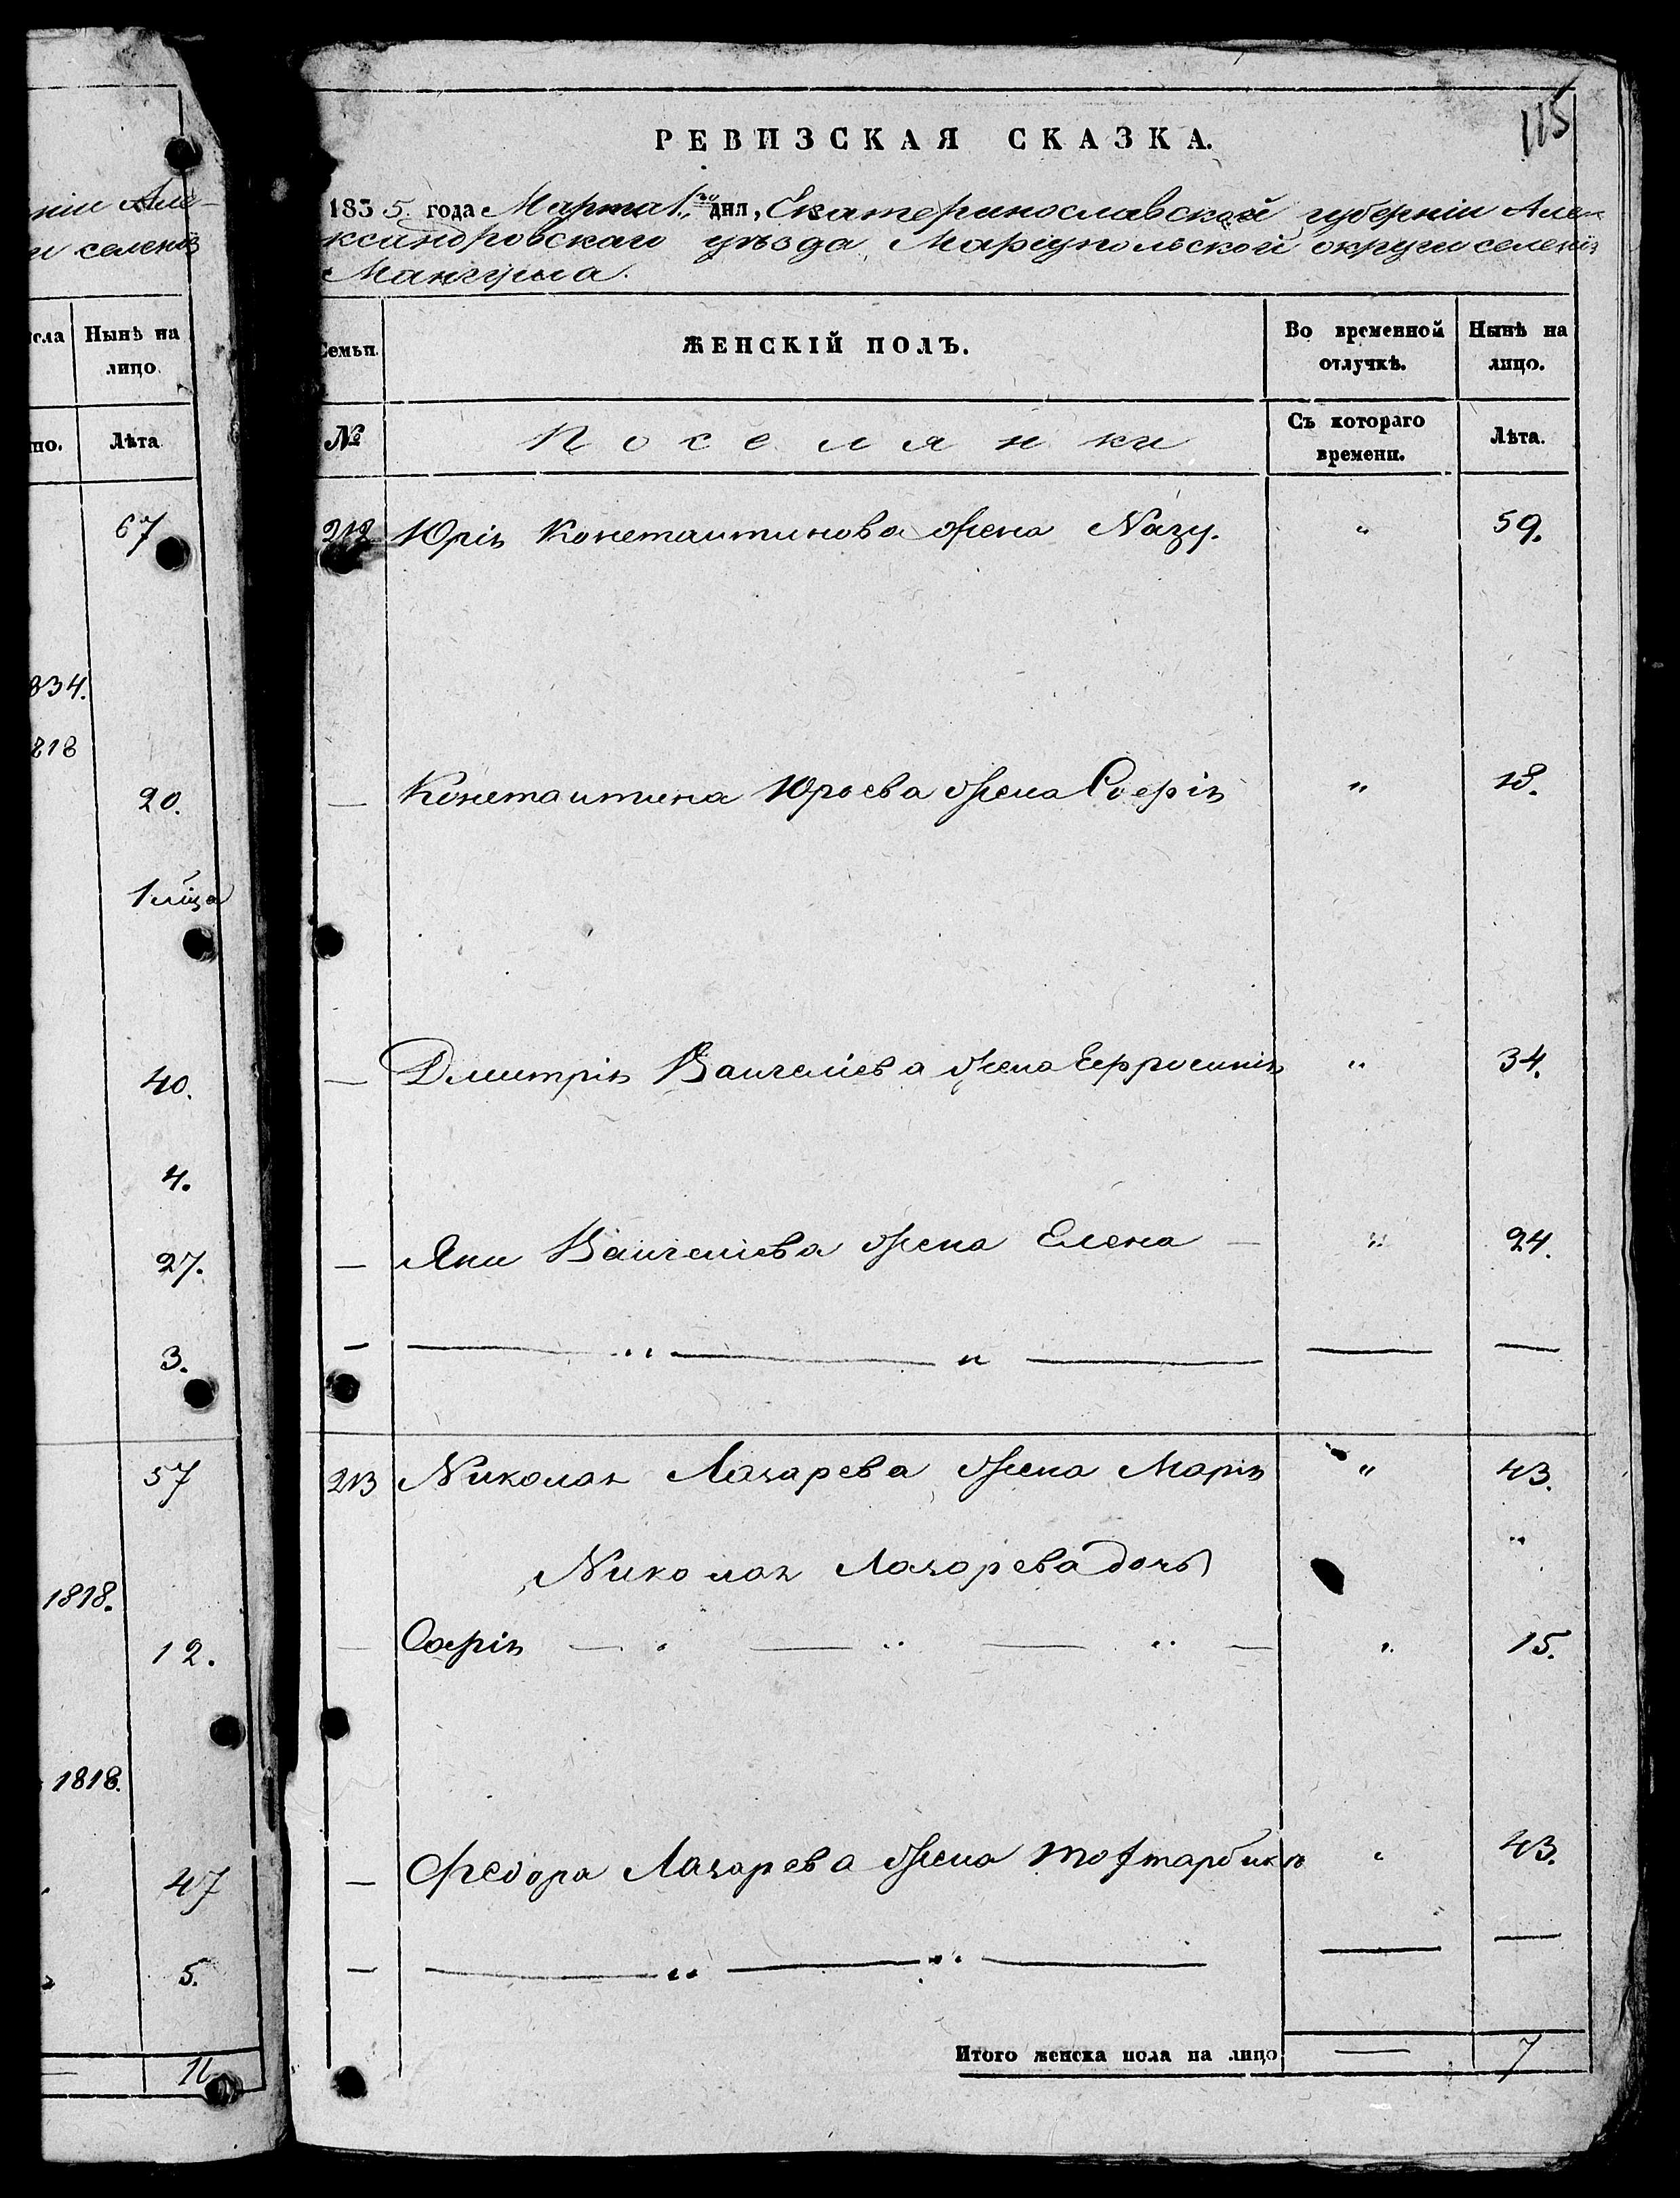 нии Але-
и селенія
Нынѣ на
лицо.
Лѣта
67
834.
818
20.
40.
4.
27.
3.
57
1818.
12.
1818.
47
5.
115
РЕВИЗСКАЯ СКАЗКА.
1835. года Марта 1го дня, Екатеринославской губерніи Але-
ксандровскаго уѣзда, Маріупольской округи селенія
Мангуша.
Семьи.
ЖЕНСКІЙ ПОЛЪ.
Во временной отлучкѣ.
Нынѣ на лицо.
№
Поселянки
Съ котораго времени.
Лѣта.
212 Юрія Константинова жена Назу. " 59.
— Константина Юрьева жена Софія " 18.
— Дмитрія Вангеліева жена Ефросинія " 34.
— Яни Вангеліева жена Елена — " 24.
— — " — " — — —
213 Николая Лазарева жена Марія " 43.
Николая Лазарева дочь "
— Софія — " — " — " — " 15.
— Федора Лазарева жена " 43.
— — " — " — — —
Итого женска пола на лицо — 7